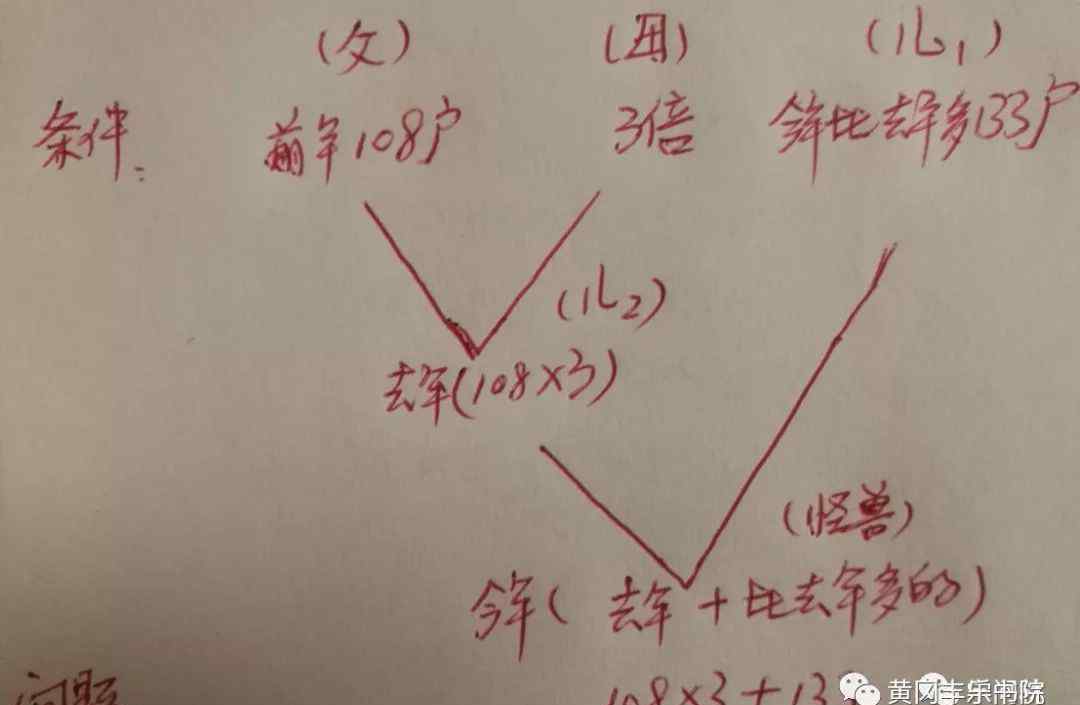 (父) (母) (儿1)
条件: 前年108户 3倍 今年比去年多133户
(儿2)
去年(108×3)
(怪兽)
今年( 去年 + 比去年多的)
问题 108×3+13
黄冈